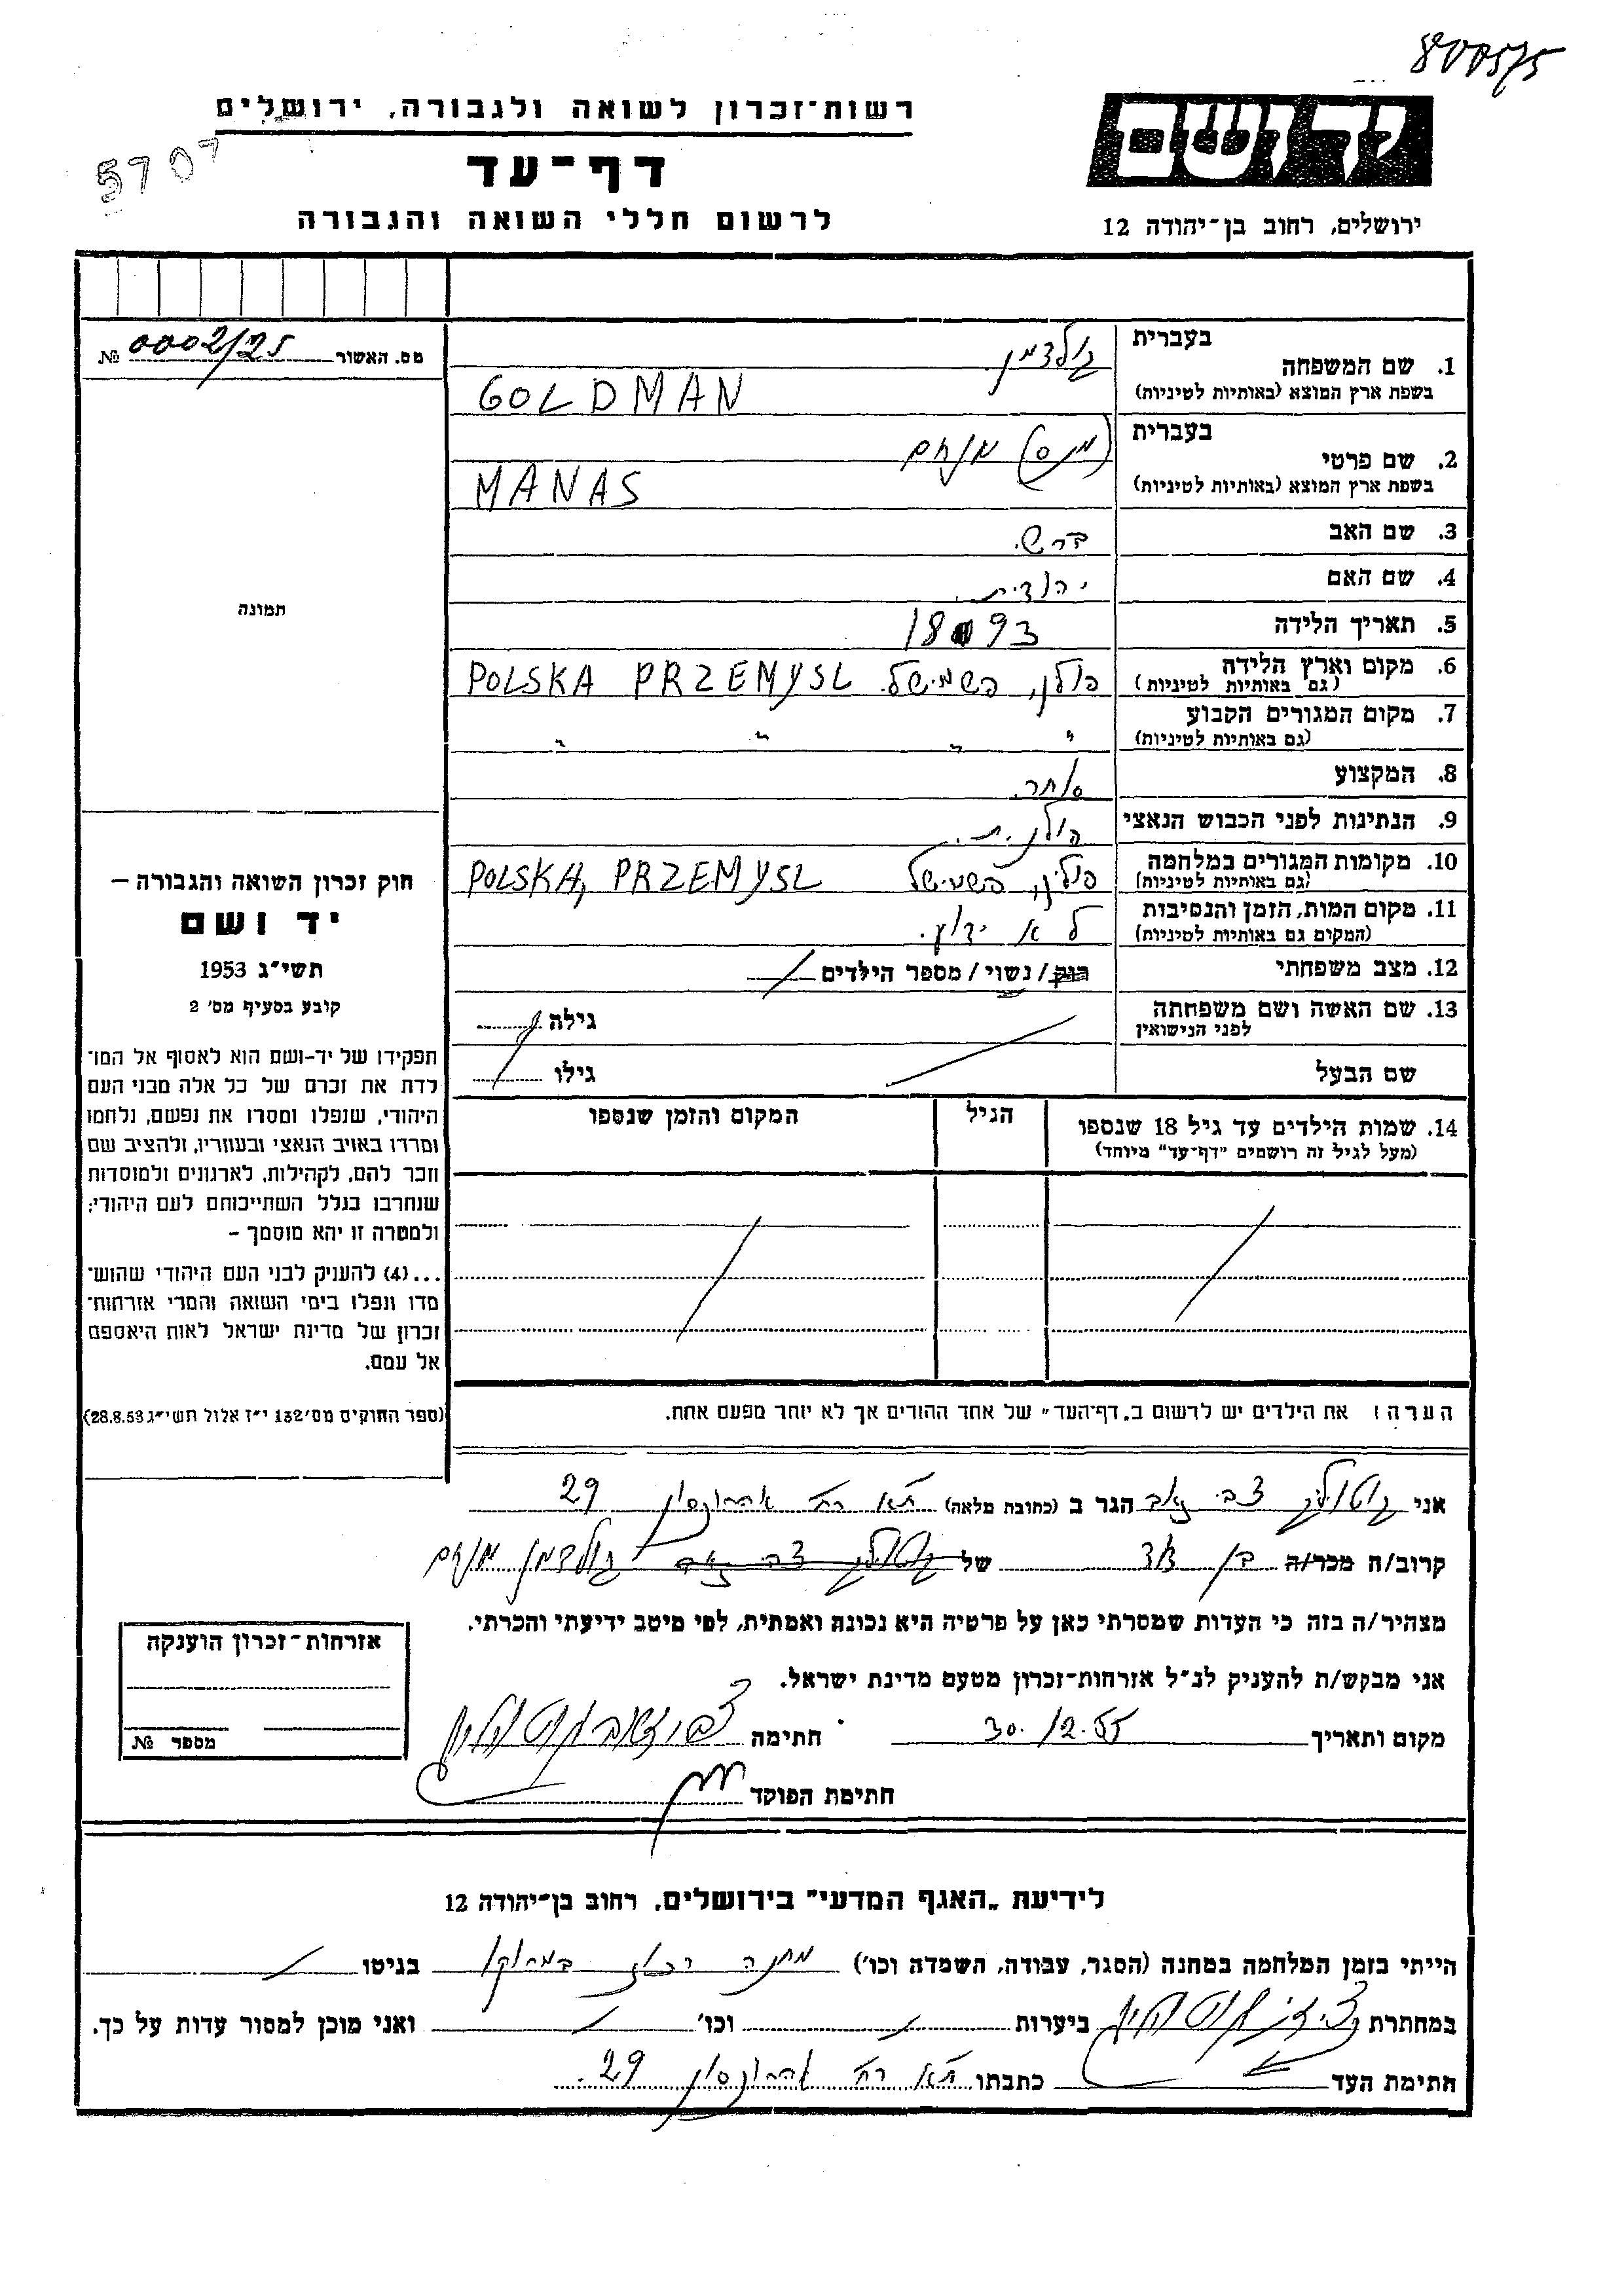 800575
5707
רשות־זכרון לשואה ולגבורה, ירושלים
דף־עד
לרשום חללי השואה והגבורה
יד ושם
ירושלים, רחוב בן־יהודה 12
מס. האשור 0002/25 №
1. שם המשפחה
בעברית גולדמן.
בשפת ארץ המוצא (באותיות לטיניות) GOLDMAN
2. שם פרטי
בעברית (מנס) מנחם
בשפת ארץ המוצא (באותיות לטיניות) MANAS
3. שם האב
4. שם האם יהודית.
5. תאריך הלידה 1893
6. מקום וארץ הלידה
(גם באותיות לטיניות) פולין, פשמישל. POLSKA PRZEMYSL
7. מקום המגורים הקבוע
(גם באותיות לטיניות) " " " "
8. המקצוע סוחר.
9. הנתינות לפני הכבוש הנאצי פולנית.
10. מקומות המגורים במלחמה
(גם באותיות לטיניות) פולין, פשמישל POLSKA, PRZEMYSL
11. מקום המות, הזמן והנסיבות
(המקום גם באותיות לטיניות) לא ידוע.
12. מצב משפחתי רוק / נשוי / מספר הילדים /
13. שם האשה ושם משפחתה
לפני הנישואין
גילה
שם הבעל
גילו
14. שמות הילדים עד גיל 18 שנספו
(מעל לגיל זה רושמים "דף־עד" מיוחד)
הגיל
המקום והזמן שנספו
תמונה
חוק זכרון השואה והגבורה –
יד ושם
תשי״ג 1953
קובע בסעיף מס׳ 2
תפקידו של יד-ושם הוא לאסוף אל המו־
לדת את זכרם של כל אלה מבני העם
היהודי, שנפלו ומסרו את נפשם, נלחמו
ומרדו באויב הנאצי ובעוזריו, ולהציב שם
וזכר להם, לקהילות, לארגונים ולמוסדות
שנחרבו בגלל השתייכותם לעם היהודי;
ולמטרה זו יהא מוסמך –
...(4) להעניק לבני העם היהודי שהוש־
מדו ונפלו בימי השואה והמרי אזרחות־
זכרון של מדינת ישראל לאות היאספם
אל עמם.
(ספר החוקים מס׳ 132 י״ז אלול תשי״ג 28.8.53)
הערה: את הילדים יש לרשום ב„דף־העד" של אחד ההורים אך לא יותר מפעם אחת.
אני צבי זאב הגר ב (כתובת מלאה) ת״א רח׳ אהרונסון 29
קרוב/ה מכר/ה בן דוד של גולדמן מנחם
מצהיר/ה בזה כי העדות שמסרתי כאן על פרטיה היא נכונה ואמתית, לפי מיטב ידיעתי והכרתי.
אני מבקש/ת להעניק לנ״ל אזרחות־זכרון מטעם מדינת ישראל.
מקום ותאריך 30.12.55 חתימה
חתימת הפוקד
אזרחות־זכרון הוענקה
מספר №
לידיעת „האגף המדעי" בירושלים, רחוב בן־יהודה 12
הייתי בזמן המלחמה במחנה (הסגר, עבודה, השמדה וכו׳) מחנה רכוז במרוקו בגיטו /
במחתרת ביערות / וכו׳ / ואני מוכן למסור עדות על כך.
חתימת העד כתבתו ת״א רח׳ אהרונסון 29.